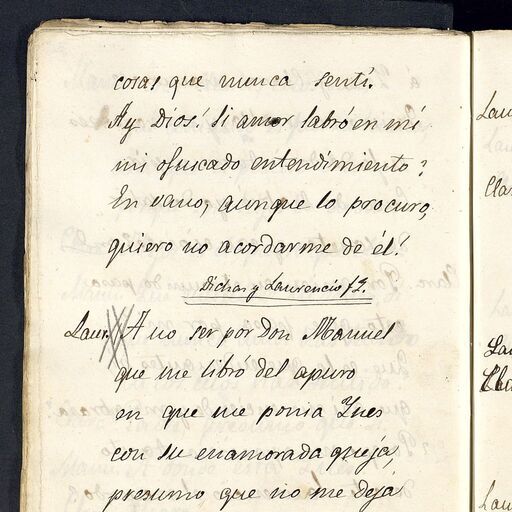 cosas que nunca sentí.
Ay Dios! si amor labró en mí
mi ofuscado entendimiento?
En vano, aunque lo procuro,
quiero no acordarme de él!
Dichas y Laurencio
Laur. A no ser por Don Manuel
que me libró del apuro
en que me ponia Ynes
con su enamorada queja,
presumo que no me deja
Lau
Cla
La
Cla
Lau